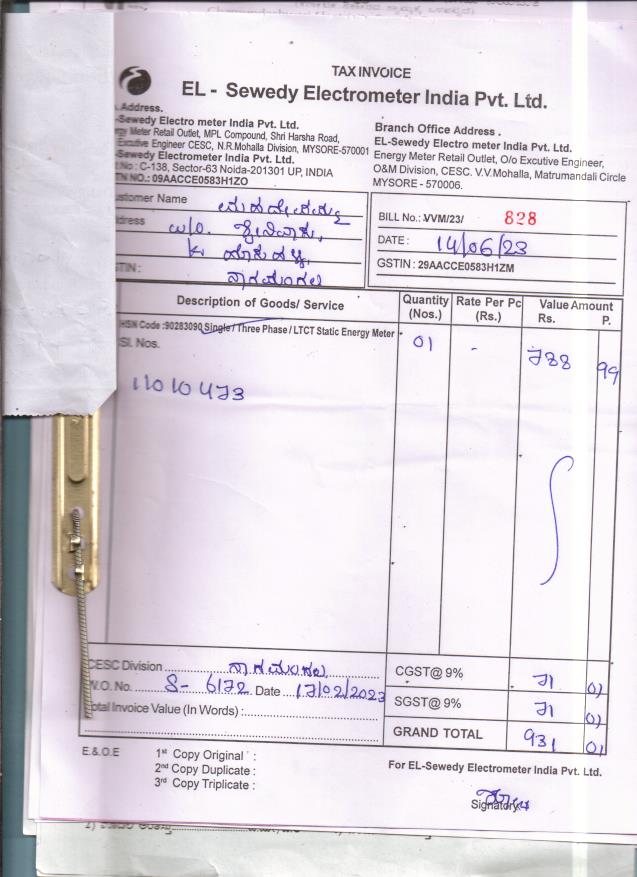 TAX INVOICE
EL - Sewedy Electrometer India Pvt. Ltd.
Address.
-Sewedy Electro meter India Pvt. Ltd.
Meter Retail Outlet, MPL Compound, Shri Harsha Road,
Executive Engineer CESC, N.R.Mohalla Division, MYSORE-570001
-Sewedy Electrometer India Pvt. Ltd.
No : C-138, Sector-63 Noida-201301 UP, INDIA
TN NO.: 09AACCE0583H1ZO
Branch Office Address .
EL-Sewedy Electro meter India Pvt. Ltd.
Energy Meter Retail Outlet, O/o Excutive Engineer,
O&M Division, CESC. V.V.Mohalla, Matrumandali Circle
MYSORE - 570006.
ustomer Name
ddress w/o.
STIN : ನಾಗಮಂಗಲ
BILL No.: VVM/23/ 828
DATE : 14/06/23
GSTIN : 29AACCE0583H1ZM
Description of Goods/ Service Quantity (Nos.) Rate Per Pc (Rs.) Value Amount Rs. P.
HSN Code :90283090 Single / Three Phase / LTCT Static Energy Meter 01 - 788 99
Sl. Nos.
11010473
CESC Division ನಾಗಮಂಗಲ
W.O. No. S- 6172 Date 17/02/2023
otal Invoice Value (In Words) :
CGST@ 9% 71 01
SGST@ 9% 71 01
GRAND TOTAL 931 01
E.& O.E
1st Copy Original :
2nd Copy Duplicate :
3rd Copy Triplicate :
For EL-Sewedy Electrometer India Pvt. Ltd.
Signatory